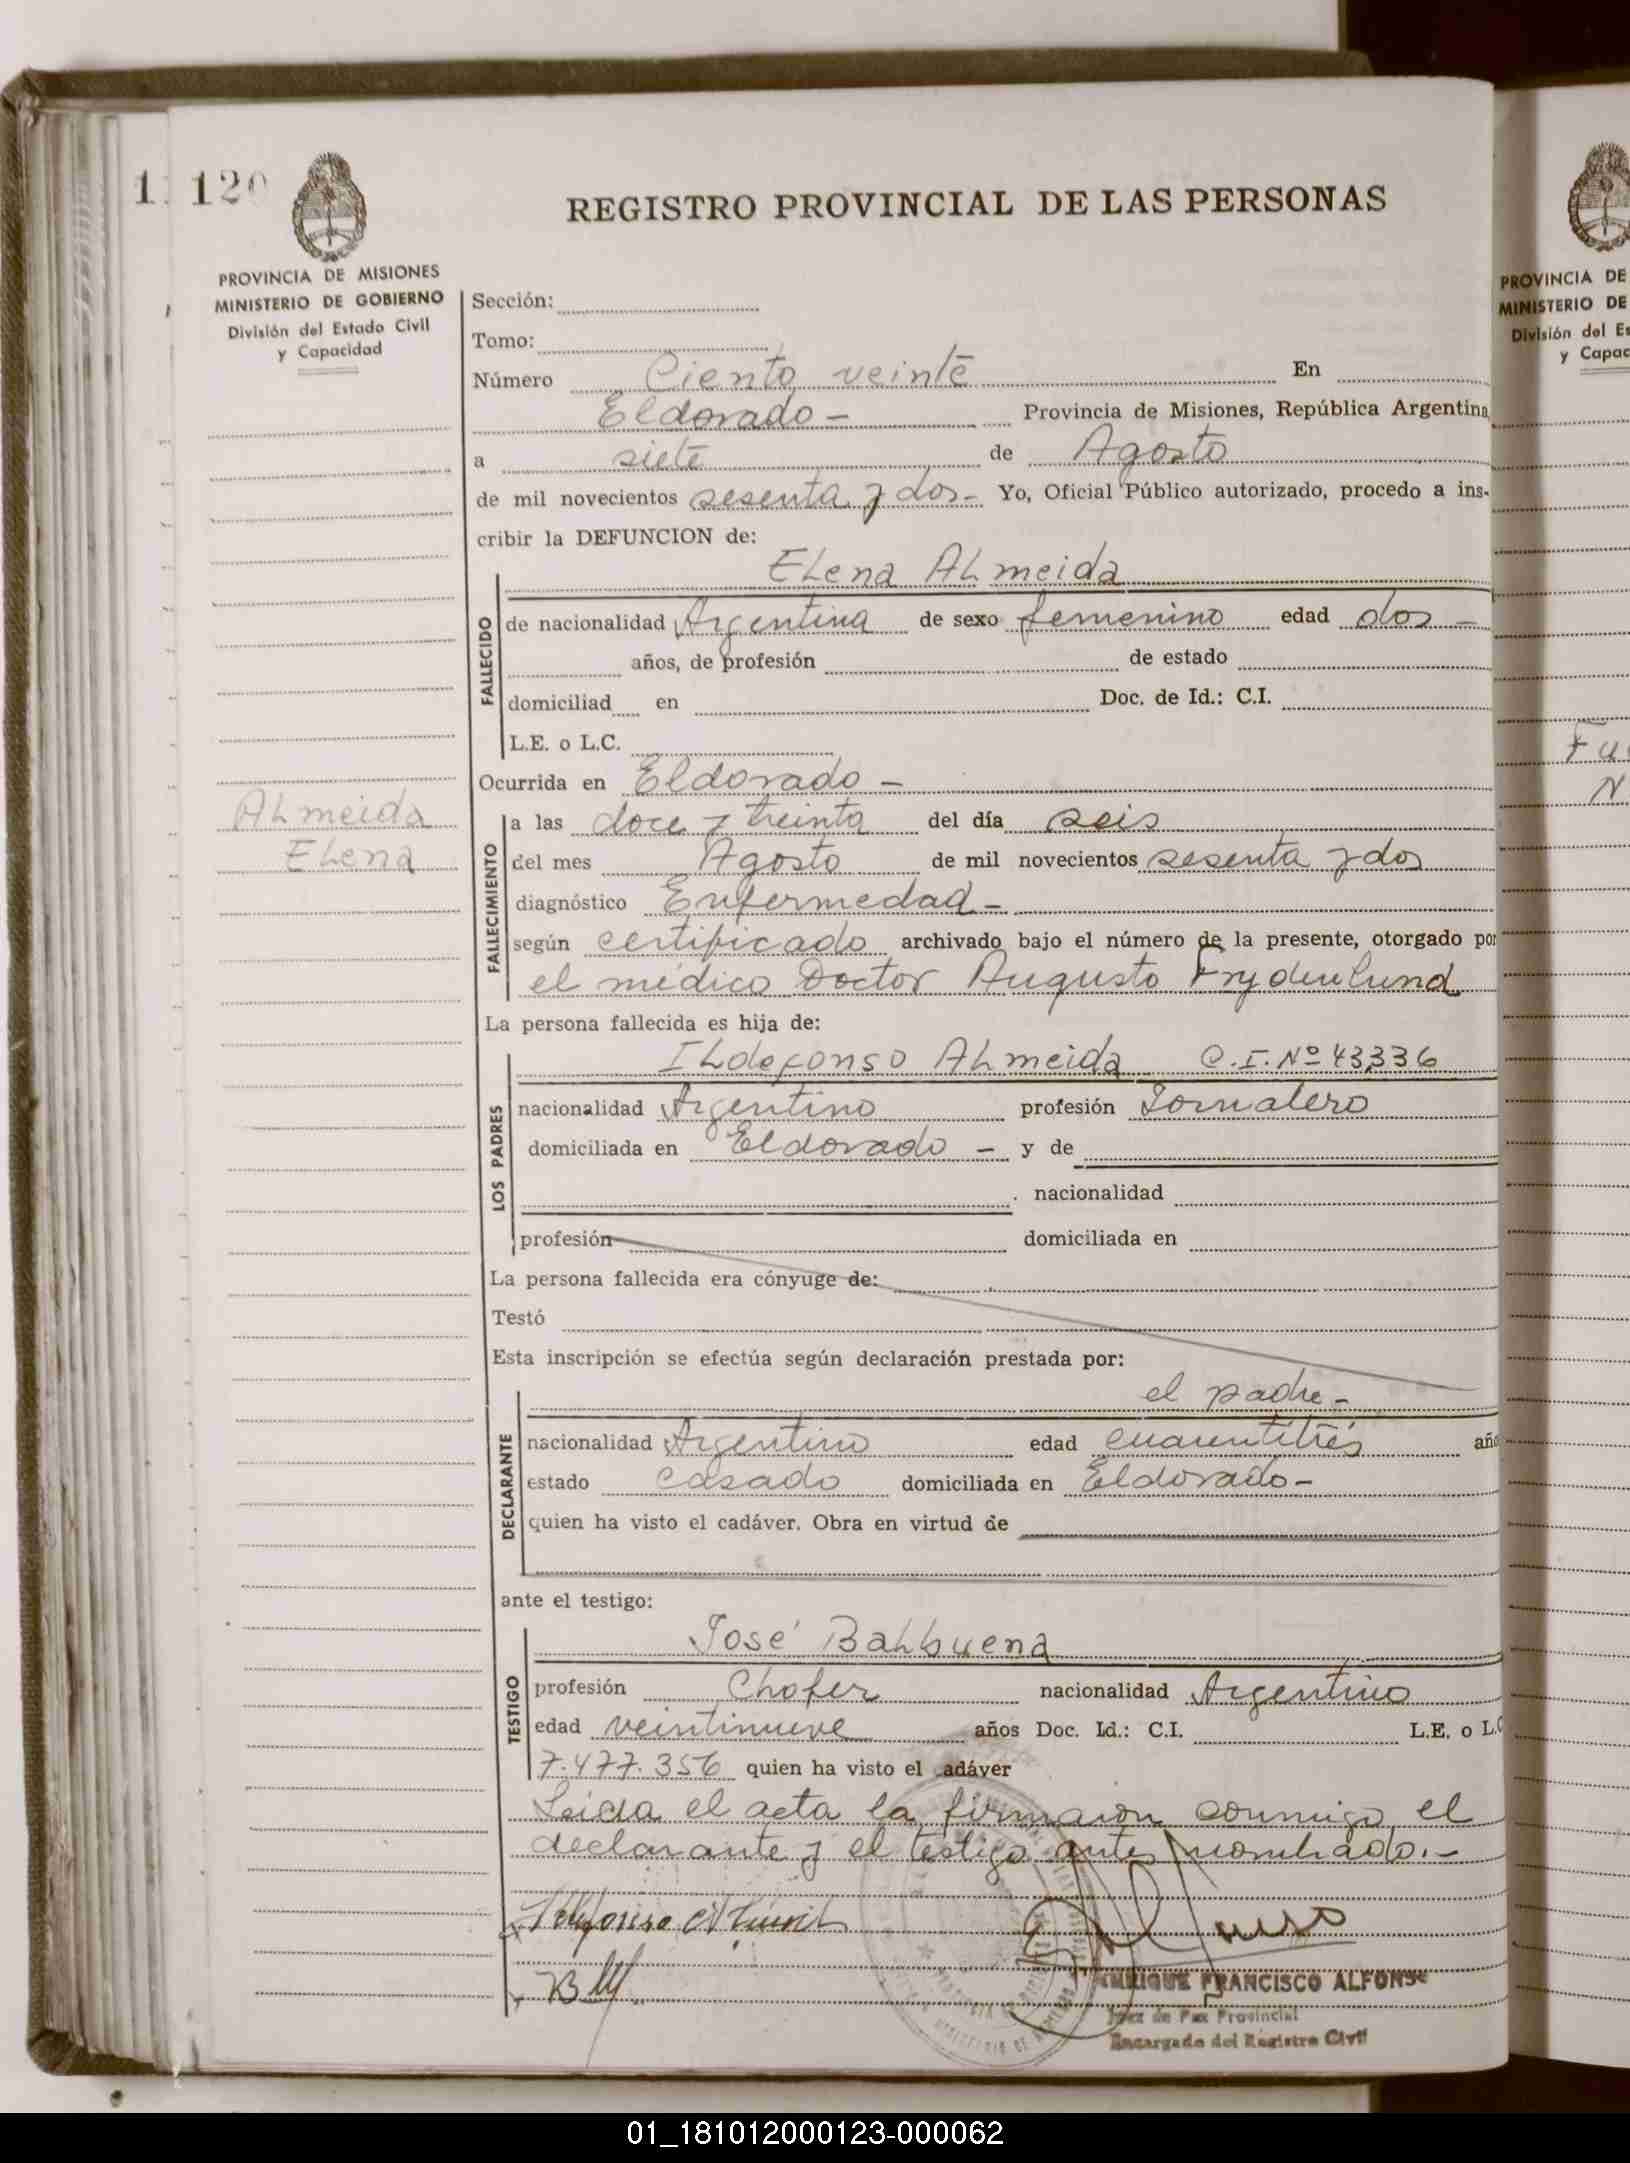 1 120
REGISTRO PROVINCIAL DE LAS PERSONAS
PROVINCIA DE MISIONES
MINISTERIO DE GOBIERNO
División del Estado Civil
y Capacidad
Sección:
Tomo:
Número Ciento veinte En
Eldorado - Provincia de Misiones, República Argentina
a siete de Agosto
de mil novecientos sesenta y dos- Yo, Oficial Público autorizado, procedo a ins-
cribir la DEFUNCION de:
Elena Almeida
FALLECIDO
de nacionalidad Argentina de sexo femenino edad dos -
años, de profesión de estado
domiciliad en Doc. de Id.: C.I.
L.E. o L.C.
Ocurrida en Eldorado -
Almeida
Elena
FALLECIMIENTO
a las doce y treinta del día seis
del mes Agosto de mil novecientos sesenta y dos
diagnóstico Enfermedad -
según certificado archivado bajo el número de la presente, otorgado por
el médico Doctor Augusto Frydenlund
La persona fallecida es hija de:
LOS PADRES
Ildefonso Almeida C.I. Nº 43336
nacionalidad Argentino profesión Jornalero
domiciliada en Eldorado - y de
nacionalidad
profesión domiciliada en
La persona fallecida era cónyuge de:
Testó
Esta inscripción se efectúa según declaración prestada por:
DECLARANTE
el padre -
nacionalidad Argentino edad cuarentitrés añ
estado casado domiciliada en Eldorado -
quien ha visto el cadáver. Obra en virtud de
ante el testigo:
TESTIGO
José Balbuena
profesión Chofer nacionalidad Argentino
edad veintinueve años Doc. Id.: C.I. L.E. o L.C
7.477.356 quien ha visto el cadáver
Leida el acta la firmaron conmigo el
declarante y el testigo antes nombrado.-
ENRIQUE FRANCISCO ALFONSO
Juez de Paz Provincial
Encargado del Registro Civil
PROVINCIA DE
MINISTERIO DE
División del Es
y Capac
01_181012000123-000062